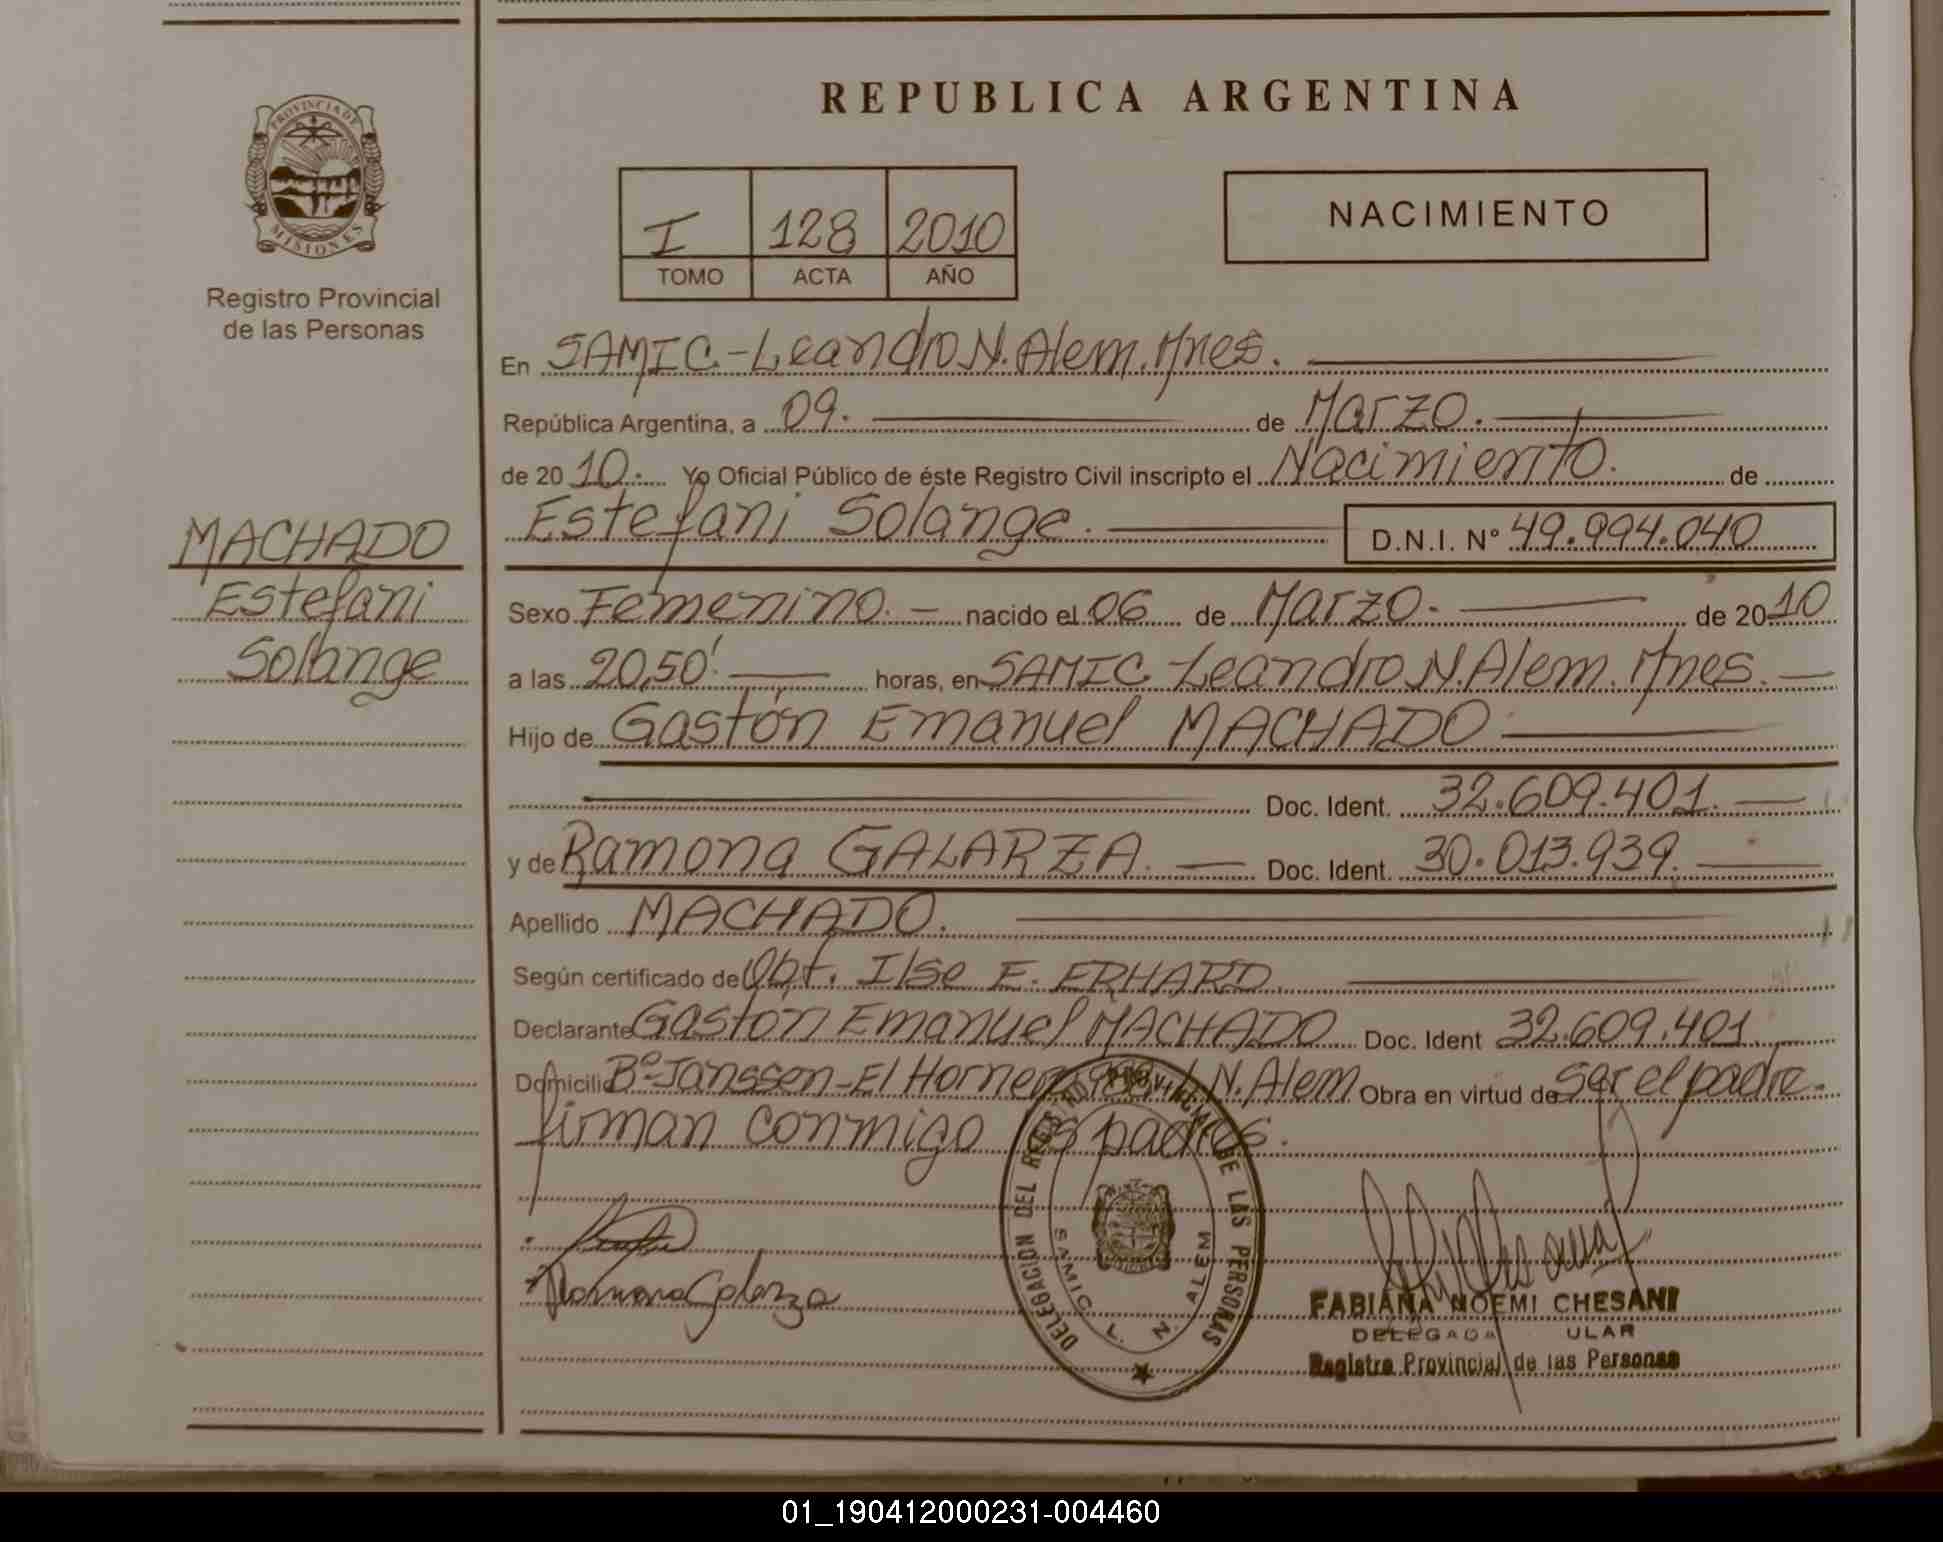 REPUBLICA ARGENTINA
PROVINCIA DE MISIONES
Registro Provincial
de las Personas
I 128 2010
TOMO ACTA AÑO
NACIMIENTO
En SAMIC.-Leandro N. Alem. Mnes.
República Argentina, a 09. de Marzo.
de 2010. Yo Oficial Público de éste Registro Civil inscripto el Nacimiento. de
Estefani Solange. D.N.I. N° 49.994.040
MACHADO
Estefani
Solange
Sexo Femenino. nacido el 06 de Marzo. de 2010
a las 20,50' horas, en SAMIC Leandro N. Alem. Mnes.
Hijo de Gastón Emanuel MACHADO
Doc. Ident. 32.609.401.
y de Ramona GALARZA. Doc. Ident. 30.013.939.
Apellido MACHADO.
Según certificado de Obt. Ilse E. ERHARD
Declarante Gastón Emanuel MACHADO Doc. Ident 32.609.401.
Domicilio B° Janssen-El Hornero L. N. Alem Obra en virtud de ser el padre.
firman conmigo padres.
Ramona Galarza
DELEGACION DEL REGISTRO PROVINCIAL DE LAS PERSONAS
SAMIC L. N. ALEM
FABIANA NOEMI CHESANI
DELEGADA ULAR
Registro Provincial de las Personas
01_190412000231-004460